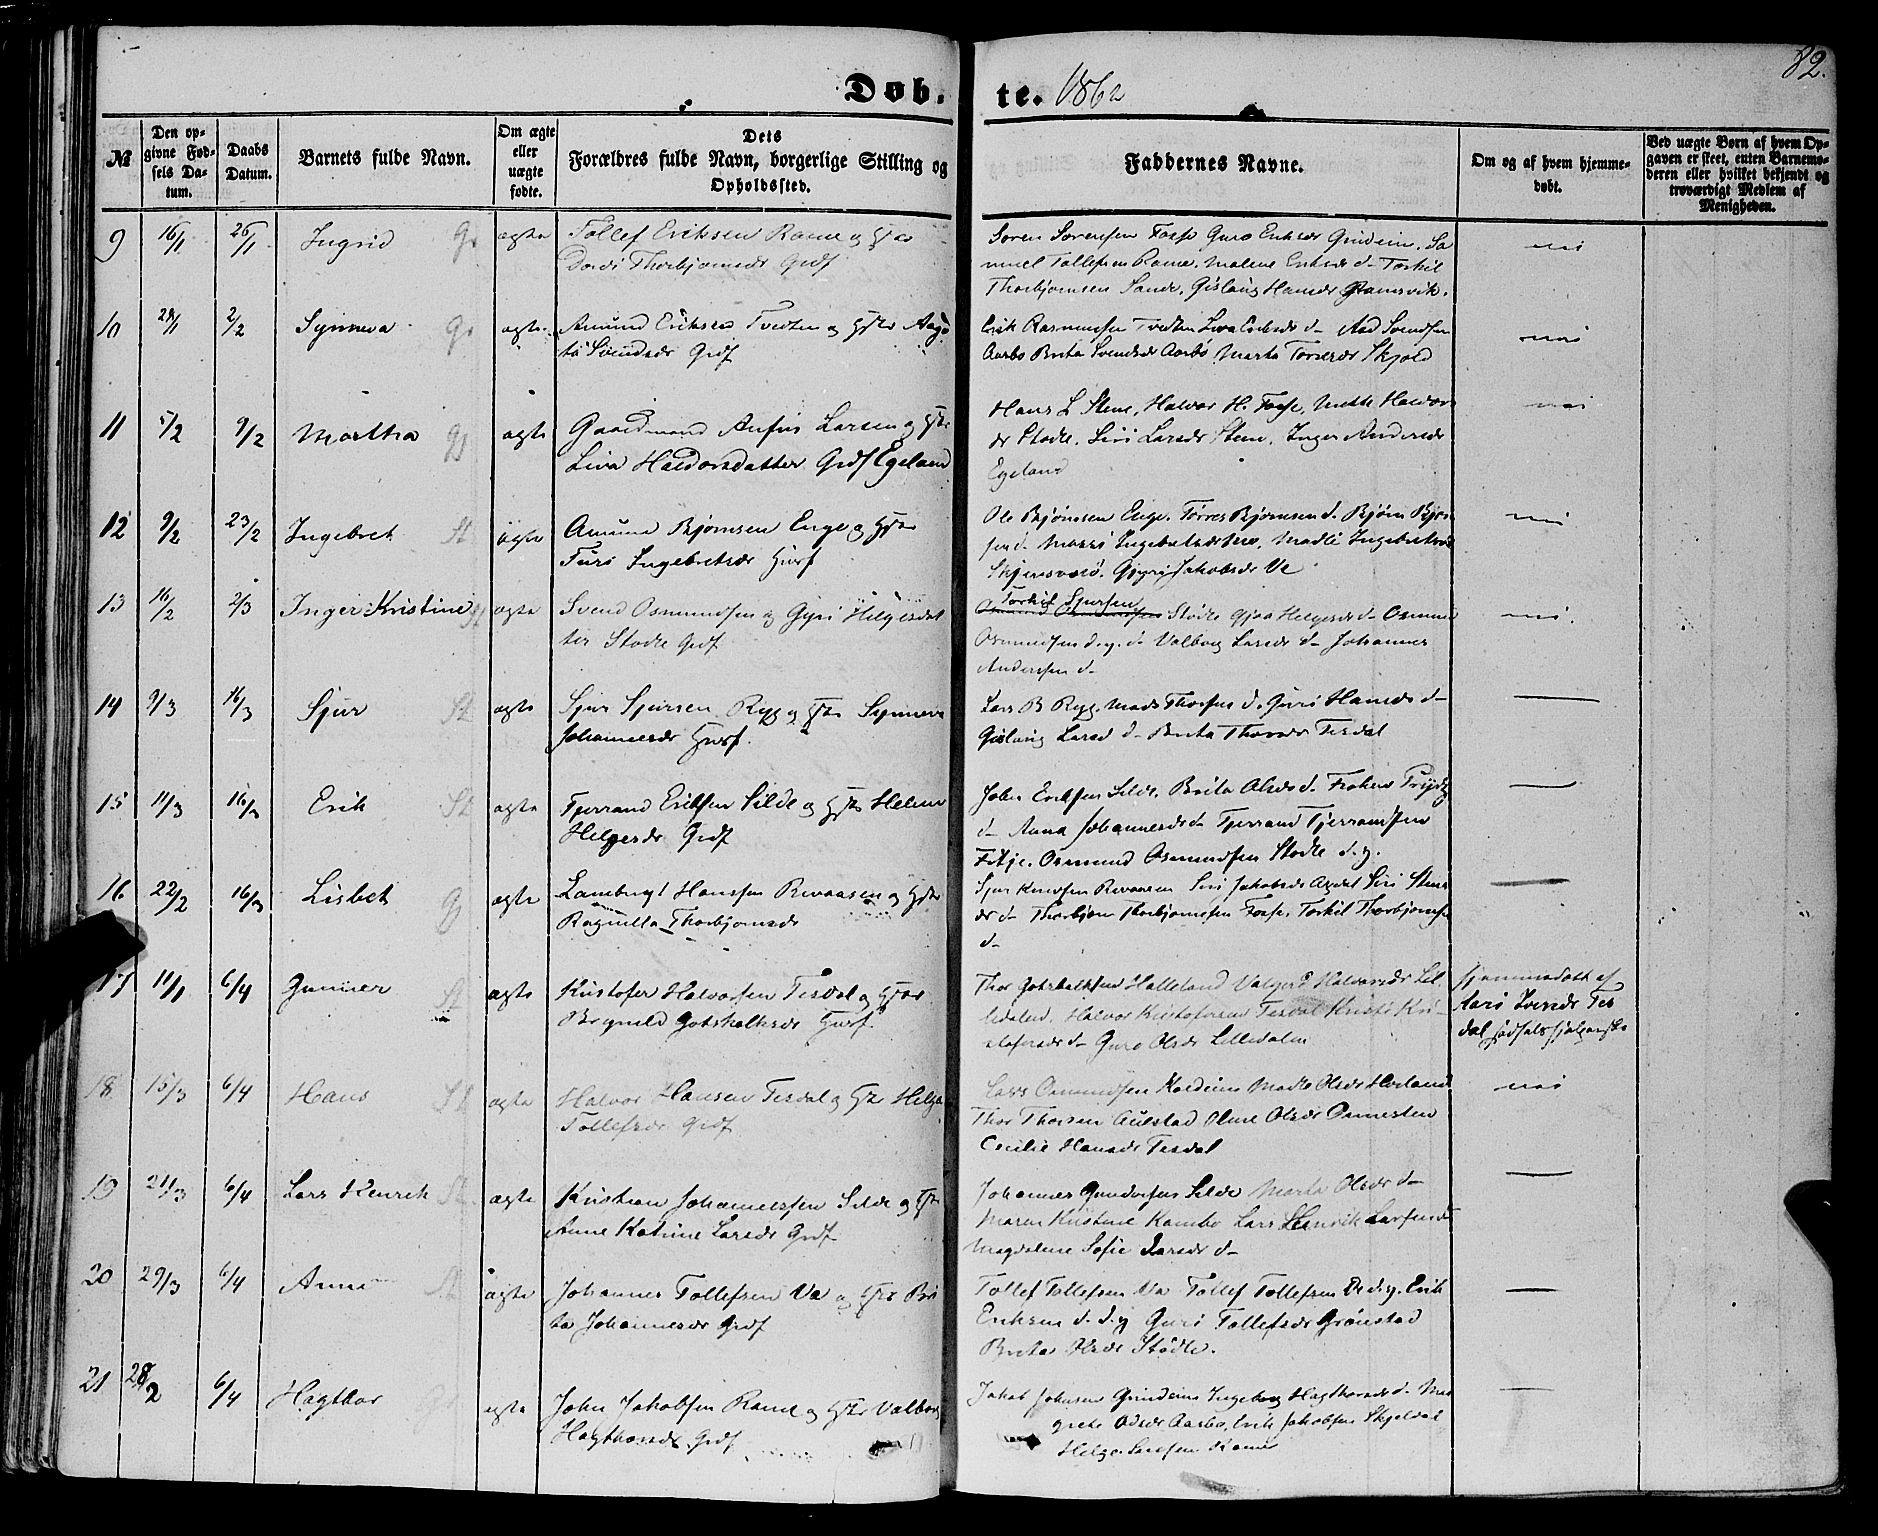 82.
Døb.te. 1862
№
Den op-
givne Fød-
sels Da-
tum.
Daabs
Datum.
Barnets fulde Navn.
Om ægte
eller
uægte
fødte.
Dets
Forældres fulde Navn, borgerlige Stilling og
Opholdssted.
Faddernes Navne.
Om og af hvem hjemme-
døbt.
Ved uægte Børn af hvem Op-
gaven er skeet, enten Barnemo-
deren eller hvilket bekjendt og
troværdigt Medlem af
Menigheden.
9 16/1 26/1 Ingrid G. ægte Tollef Eriksen Rame og Hstr
Dordi Thorbjørnsdr Grdf
Søren Sørensen Fosse Guro Eriksdr Grindeim. Sa
muel Tollefsen Rame. Malene Eriksdr d- Torkil
Thorbjørnsen Sande. Gislaug Hansdr Ramsvik.
nei
10 28/1 2/2 Synneva G. ægte. Amund Eriksen Tvedten og Hstr Aago
ta Svendsdr Grdf
Erik Rasmussen Tvedten Liva Eriksdr d- Aad Svendsen
Aarbø Brita Svendsdr Aarbø Marta Torersdr Skjold
nei
11 5/2 9/2 Martha G ægte Gaardmand Anfin Larsen og Hstr
Liva Haldorsdatter Grdf Egeland
Hans L Stene, Halvor H. Fosse, Mette Haldors
dr Stødle. Siri Larsdr Stene, Inger Andersdr
Egeland
nei
12 9/2 23/2 Ingebret St ægte Amund Bjørnsen Enge og Hstr
Turi Ingebretsdr Husf
Ole Bjørnsen Enge. Tørres Bjørnsen d. Bjørn Bjørn
sen d- Marri Ingebretsdr Madli Ingebretsdr
Gyri Jakobsdr Ve
nei
13 16/2 2/3 Inger Kristine St ægte Svend Osmundsen og Gyri Helgesdat
ter Stødle Grdf
Torkil Sjursen
Stødle Gjøa Helgesdr d- Osmund
Osmundsen d. y. d- Valborg Larsdr d- Johannes
Andersen d-
nei.
14 9/3 16/3 Sjur St ægte Sjur Sjursen Ryg og Hstr Synneva
Johannesdr Husf.
Lars B Ryg. Mads Thorsen d. Guri Hansdr d-
Gislaug Larsd d- Brita Thorsdr Tesdal
15 11/3 16/3 Erik St ægte Tjerrand Eriksen Silde og Hstr Helene
Helgesdr Grdf
John Eriksen Silde. Brita Olsdr d. Frøken Prydtz
d- Anna Johannesdr d- Tjerrand Tjerrandsen
Fitje. Osmund Osmundsen Stødle d. y.
16 22/2 16/3 Lisbet G ægte Lambregt Hanssen Revaasen og Hstr
Ragnilla Thorbjørnsdr
Sjur Knudsen Revaasen Siri Jakobsdr Axdal Siri Stens
dr d- Thorbjørn Thorbjørnsen Fosse. Torkil Thorbjørnsen
d-
17 11/1 6/4 Gunner St ægte Kristofer Halvorsen Tesdal og Hstr
Bogneld Gotskalksdr Husf.
Thor Gotskalksen Halleland Valgerd Halvorsdr Lil
ledalen. Halvor Kristofersen Tesdal Kristi Kri-
stofersdr d- Guro Olsdr Lilledalen
hjemmedøbt af
Kari Iversdr Tes
dal fødselshjelperske
18 15/3 6/4 Hans St ægte Halvor Hansen Tesdal og Hstr Helga
Tollefsdr Grdf
Lars Osmundsen Madle Olsdr Høiland
Thor Thorsen Austad Oline Olsdr Ormesten
Cecilie Hansdr Tesdal
nei
19 21/3 6/4 Lars Henrik St ægte Kristian Johannessen Silde og Hstr
Anne Katrine Larsdr Grdf
Johannes Gundersen Silde Marta Olsdr d-
Maren Kristine Kambo Lars Henrik Larsen d-
Magdalene Sofie Larsdr d-
20 29/3 6/4 Anna St ægte Johannes Tollefsen Va og Hstr Bri
ta Johannesdr Grdf
Tollef Tollefsen Va Tollef Tollefsen d. y. Erik
Eriksen d. d. y Guri Tollefsdr Grønstad
Brita Olsdr Stødle.
21 28/2 6/4 Hagthor St ægte John Jakobsen Rame og Hstr Valborg
Hagthorsdr Grdf
Jakob Johnsen Grindeim Ingeborg Hagthorsdr d- Mar
grete Olsdr Aarbø, Erik Jakobsen Skjeldal
Helge Rame